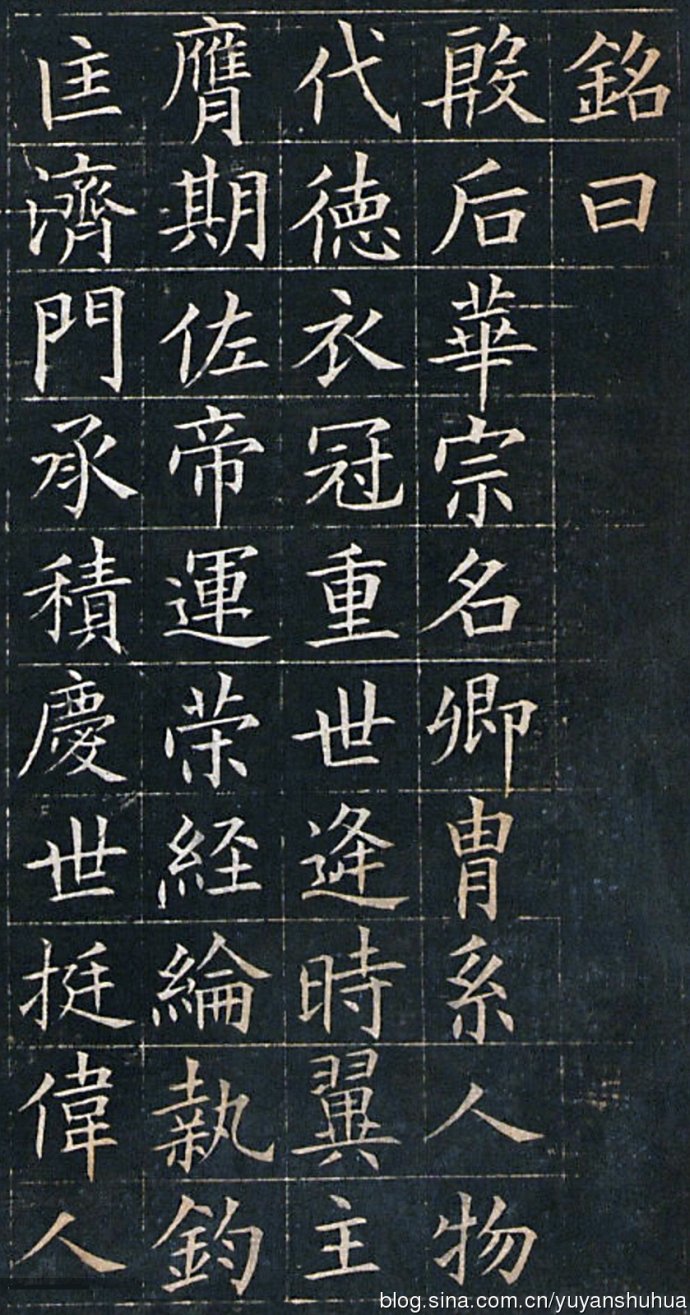 銘曰
殷后華宗名卿冑系人物
代徳衣冠重世逄時翼主
膺期佐帝運荣経綸執鈞
匡濟門承積慶世挺偉人
blog.sina.com.cn/yuyanshuhua